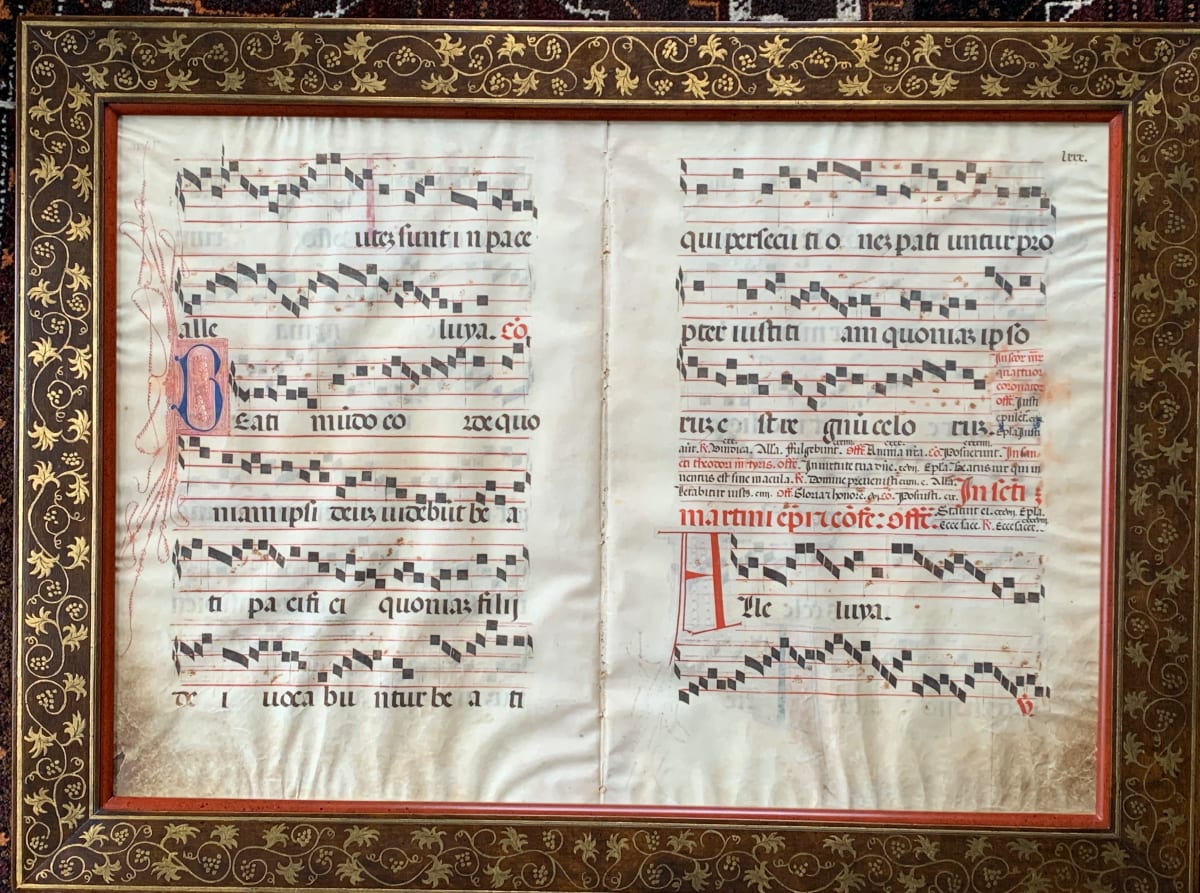 utez sunt i n pace
alle luya. cō
B Eati mūdo co rde quo
niam ipsi deuz uidebūt be a
ti pa cifi ci quoniaz filij
de i uoca bu ntur be a ti
lxx.
qui persecu ti o nez pati untur pro
pter iusti ti am quoniaz ip so
ruz e st re gnū celo ruz.
In scōr mr̄
quattuor
coronator
off. Justi
epulēt.
Ep̄la Justi
aūt. R. Vindica. Alla. fulgebunt. Off. Anima nr̄a. cō Posuerunt. In san
cti theodori mr̄tyris. offic. In uirtute tua dn̄e. Ep̄la. Beatus uir qui in
uentus est sine macula. R. Domine preuenisti eum. Alla.
letabitur iust⁹. Off. Gloria et honore. cō. Posuisti. In scti
martini ep̄i et cōfe: offic. Statuit ei. Ep̄la.
Ecce sace. R. Ecce sacer.
A lle luya.
V